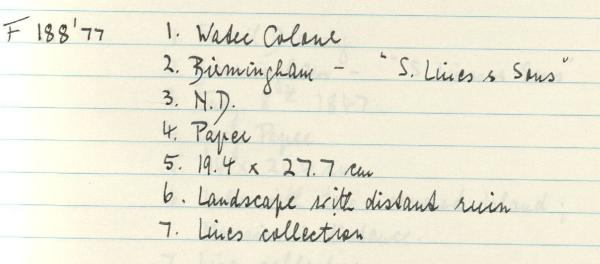 F 188'77 1. Water Colour
2. Birmingham - "S. Lines & Sons"
3. N.D.
4. Paper
5. 19.4 x 27.7 cm
6. Landscape with distant ruin
7. Lines collection